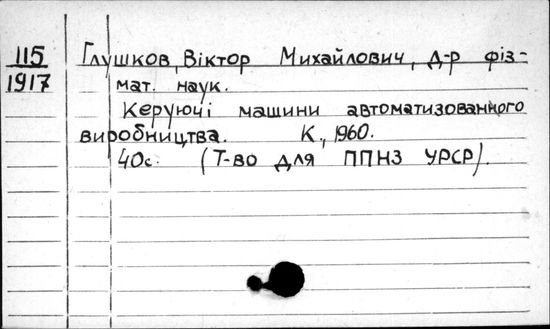 115
1917
Глушков, Віктор Михайлович, д-р фіз-
мат. наук.
Керуючі машини автоматизованного
виробництва. К., 1960.
40с. (Т-во для ППНЗ УРСР).